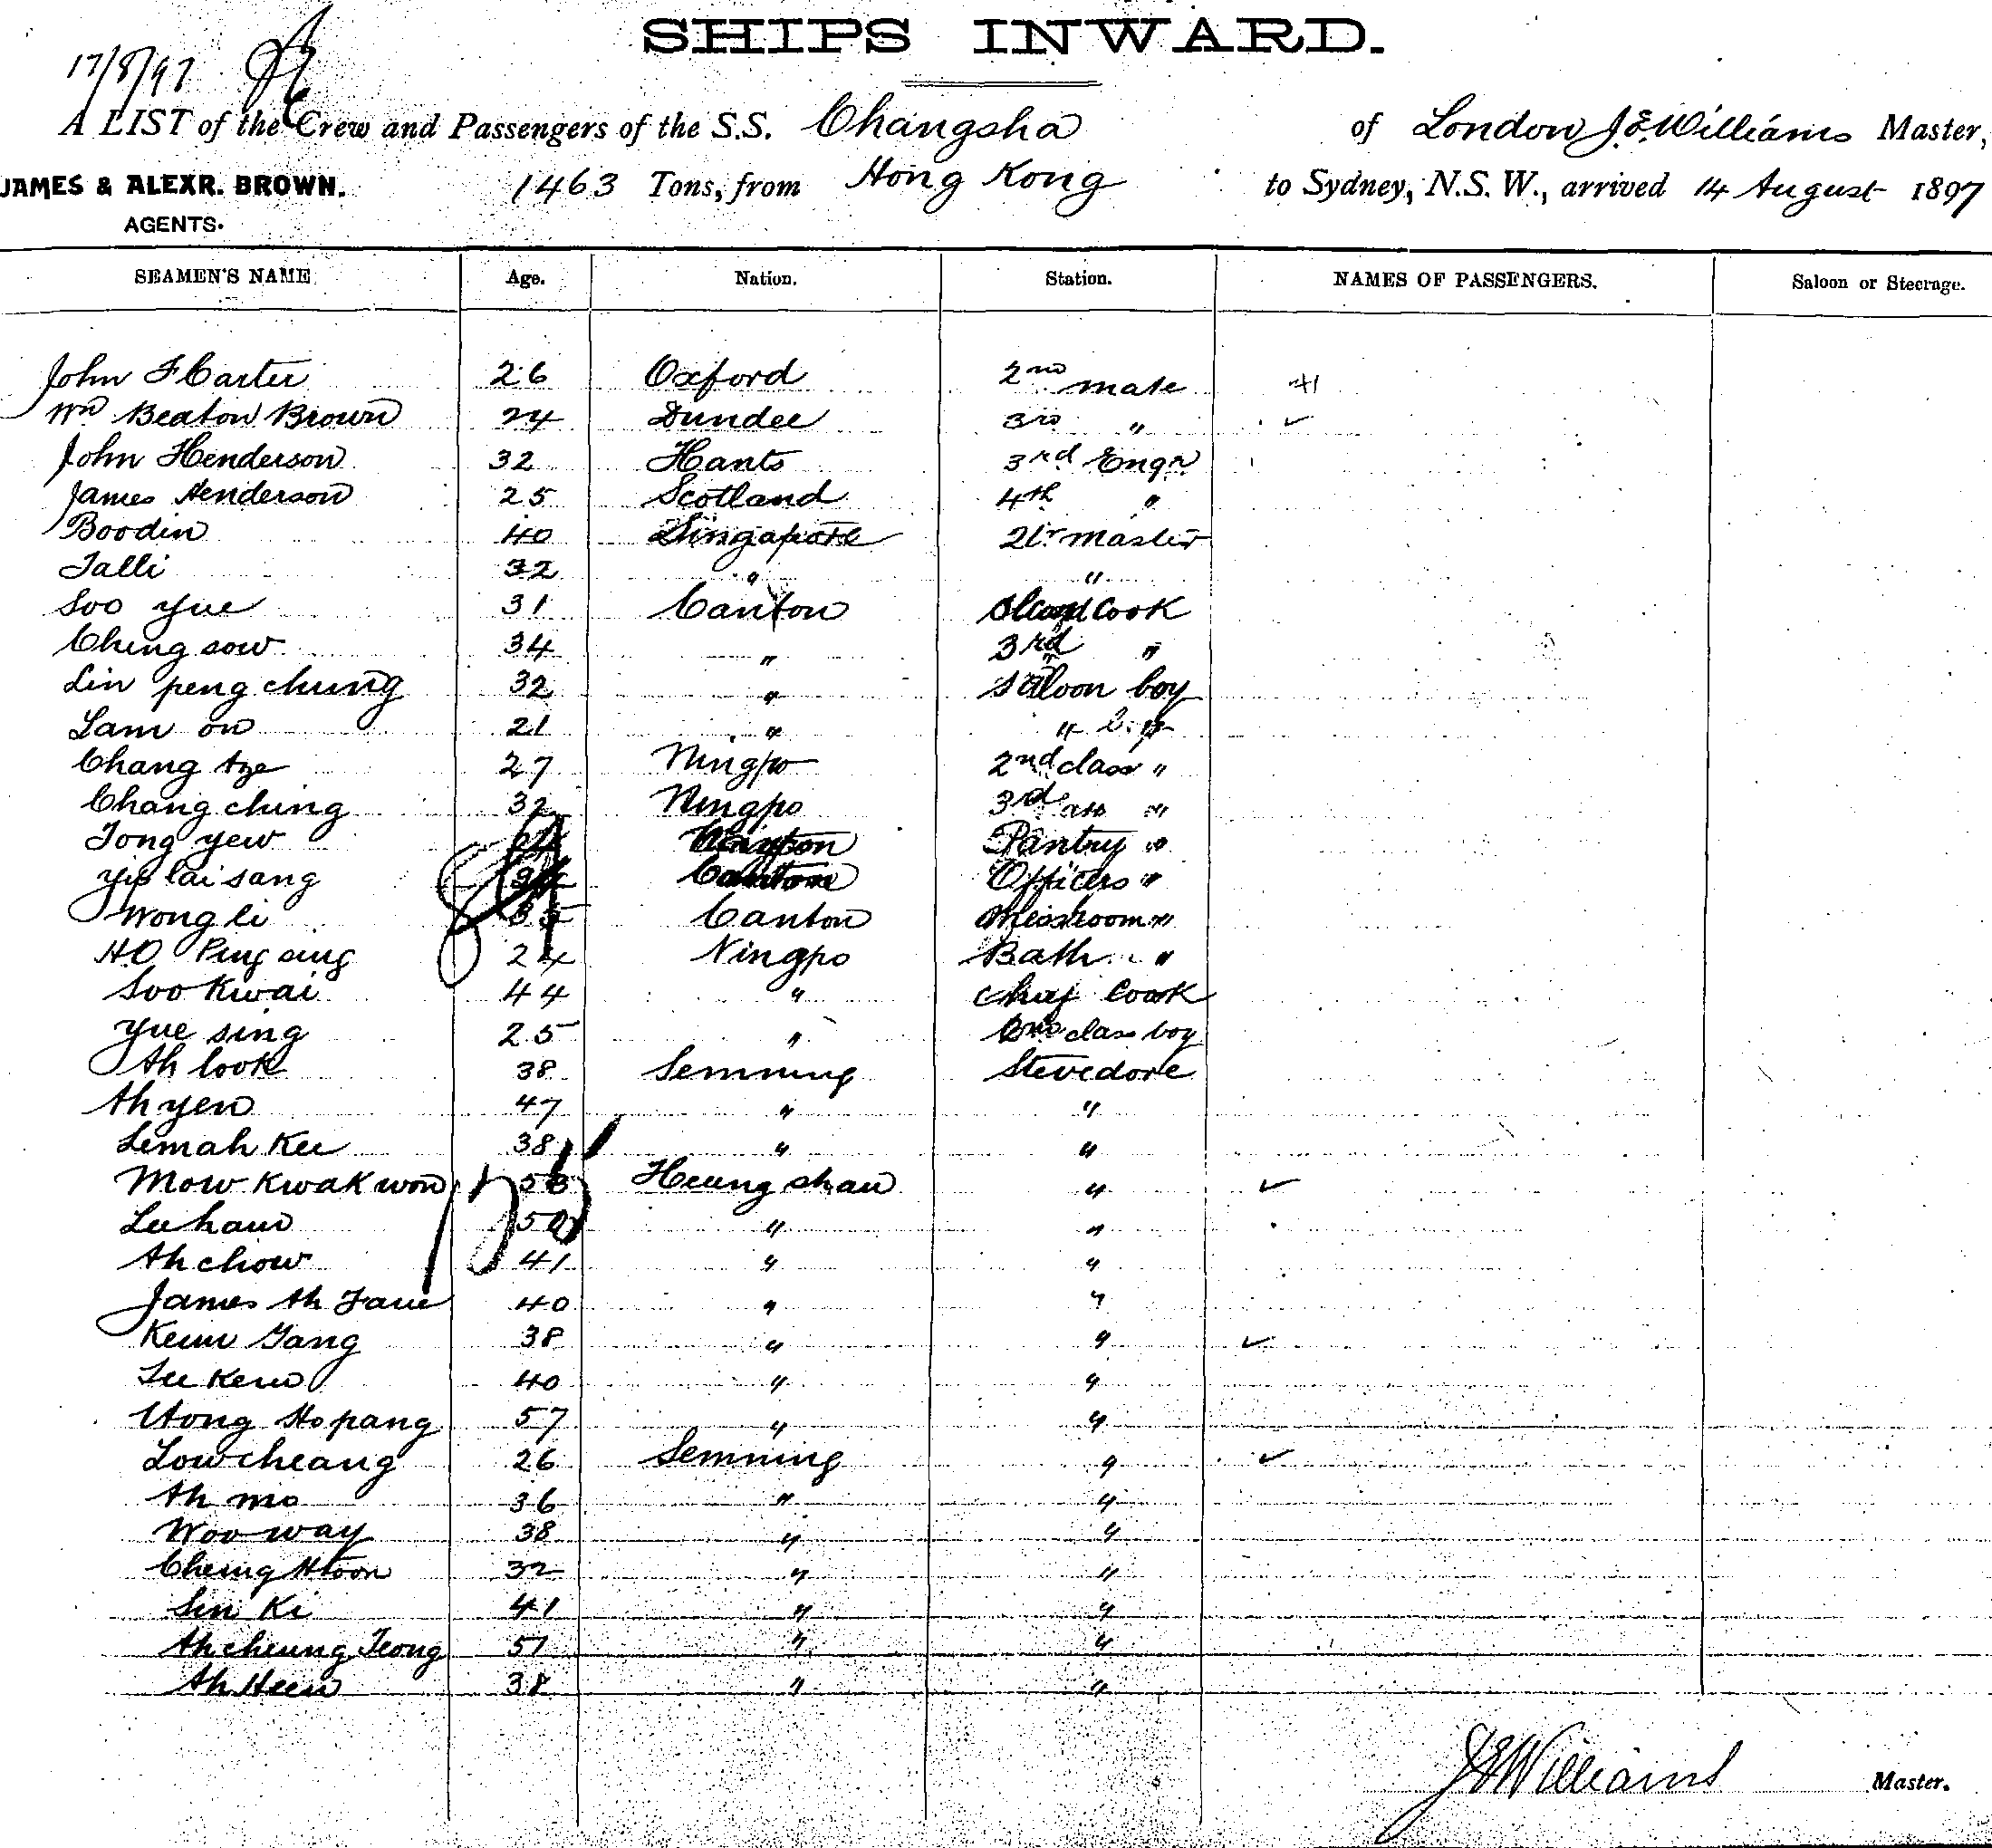 SHIPS INWARD.
17/8/97
A LIST of the Crew and Passengers of the S.S. Changsha of London J.E. Williams Master,
JAMES & ALEXR. BROWN. 1463 Tons, from Hong Kong to Sydney, N.S.W., arrived 14 August 1897
AGENTS.
SEAMEN'S NAME Age. Nation. Station. NAMES OF PASSENGERS. Saloon or Steerage.
John F Carter 26 Oxford 2nd mate
Wm Beaton Brown 24 Dundee 3rd "
John Henderson 32 Hants 3rd Engr
James Henderson 25 Scotland 4th "
Boodin 40 Singapore 2tr master
Talli 32 " "
Soo yue 31 Canton Cook
Ching sow 34 " 3rd "
Lin peng chung 32 " saloon boy
Lam on 21 " "
Chang tze 27 Ningpo 2nd class "
Chang ching 32 Ningpo 3rd "
Tong yew Pantry "
yip lai sang Canton Officers "
Wong li 35 Canton Messroom "
HO Ping sing 24 Ningpo Bath "
Soo Kwai 44 " Chief Cook
yue sing 25 " class boy
Ah look 38 Semning Stevedore
Ah yen 47 " "
Lemah Kee 38 " "
Mow Kwak won 56 Heung shan "
Lee ham 50 " "
Ah chow 41 " "
James Ah Fane 40 " "
Keum Gang 38 " "
Lee Kem 40 " "
Hong Ho pang 57 " "
Low cheang 26 Semning "
Ah mo 36 " "
Woo way 38 " "
Cheing Hoon 32 " "
Sin Ki 41 " "
Ah cheung Teong 51 " "
Ah Heen 38 " "
J E Williams Master.